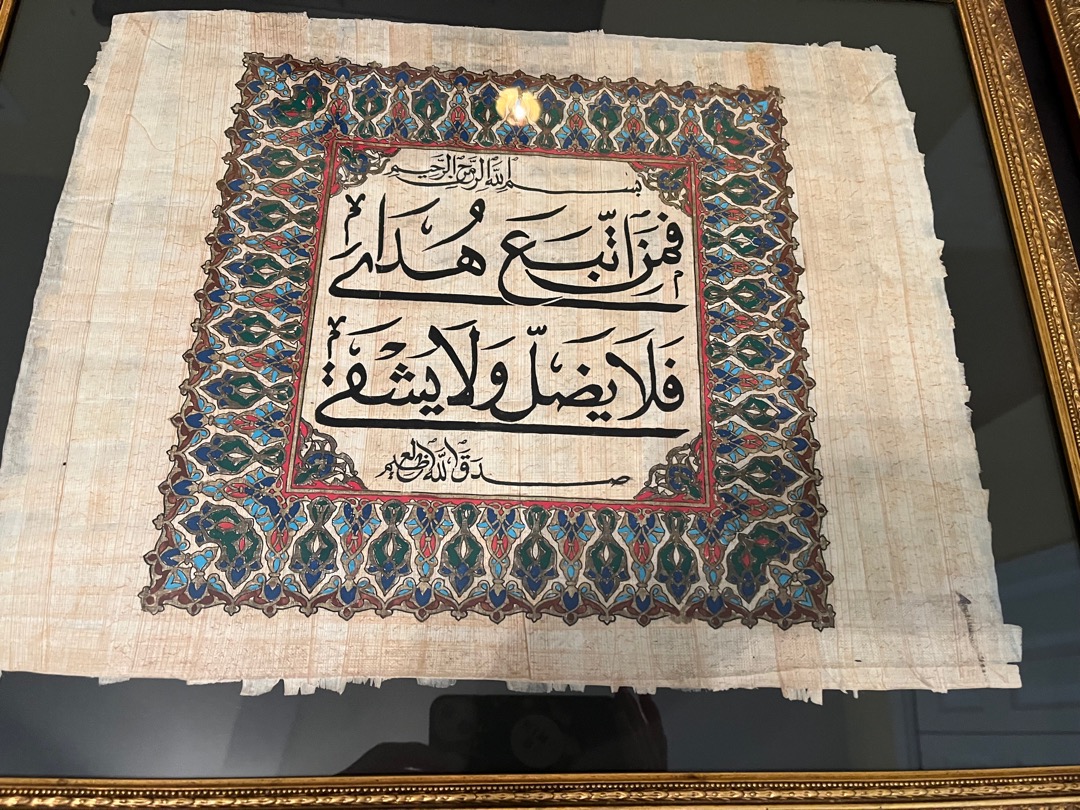 بسم الله الرحمن الرحيم
فمن اتّبع هُداى
فلا يضلّ ولا يشقى
صدق الله العظيم